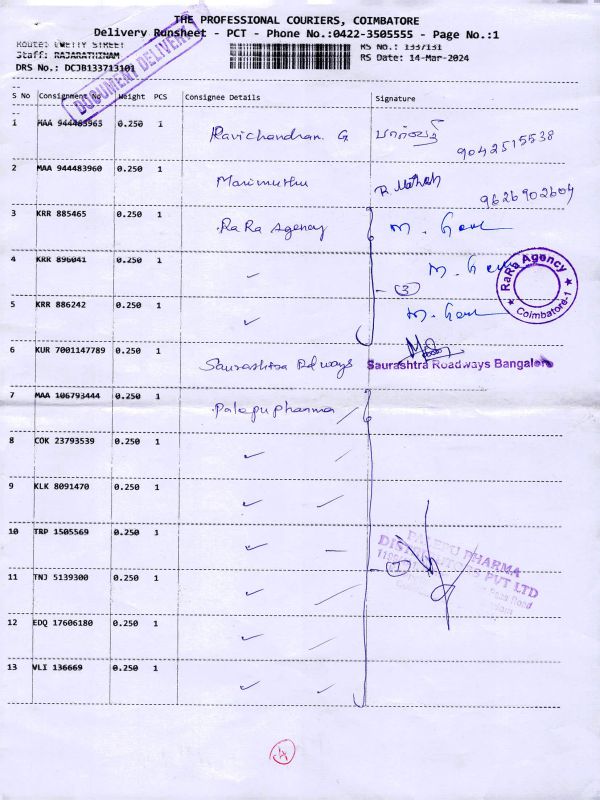 THE PROFESSIONAL COURIERS, COIMBATORE
Delivery Runsheet - PCT - Phone No.:0422-3505555 - Page No.:1
RS No.: 1337131
Staff: RAJARATHINAM
RS Date: 14-Mar-2024
DRS No.: DCJB133713101
DOCUMENT DELIVERY
S No Consignment No Weight PCS Consignee Details Signature
1 MAA 944483963 0.250 1 Ravichandran. G 9042515538
2 MAA 944483960 0.250 1 Marimuthu 9626902604
3 KRR 885465 0.250 1 RaRa Agency
4 KRR 896041 0.250 1 ✓ 3
RaRa Agency
Coimbatore-1
5 KRR 886242 0.250 1 ✓
6 KUR 7001147789 0.250 1 Saurashtra Rdways Saurashtra Roadways Bangalore
7 MAA 106793444 0.250 1 Palepu pharma
8 COK 23793539 0.250 1 ✓
9 KLK 8091470 0.250 1 ✓
10 TRP 1505569 0.250 1 ✓
PALEPU PHARMA
DISTRIBUTORS PVT LTD
11 TNJ 5139300 0.250 1 ✓ 7
12 EDQ 17606180 0.250 1 ✓
13 VLI 136669 0.250 1 ✓
4